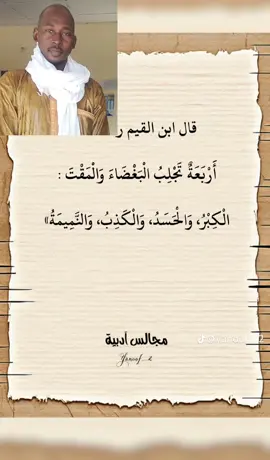 قال ابن القيم ر
أَرْبَعَةٌ تَجْلِبُ الْبَغْضَاءَ وَالْمَقْتَ :
الْكِبْرُ، وَالْحَسَدُ، وَالْكَذِبُ، وَالنَّمِيمَةُ»
مجالس أدبية